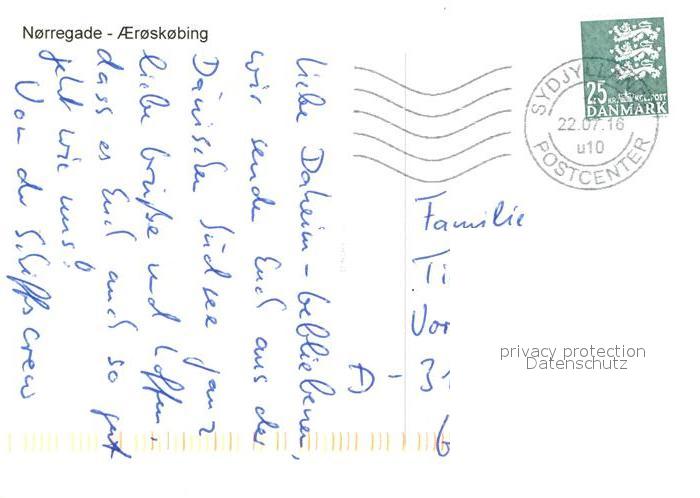 Nørregade - Ærøskøbing
Liebe Daheim-Gebliebenen,
wir senden Euch aus der
Dänischen Südsee ganz
liebe Grüße und hoffen,
dass es Euch auch so gut
geht wie uns!
Von der Schiffscrew
SYDJYLLANDS
POSTCENTER
22.07.16
u10
25 KR.
DANMARK
Familie
Ti
Vor
A - 31
6
privacy protection
Datenschutz